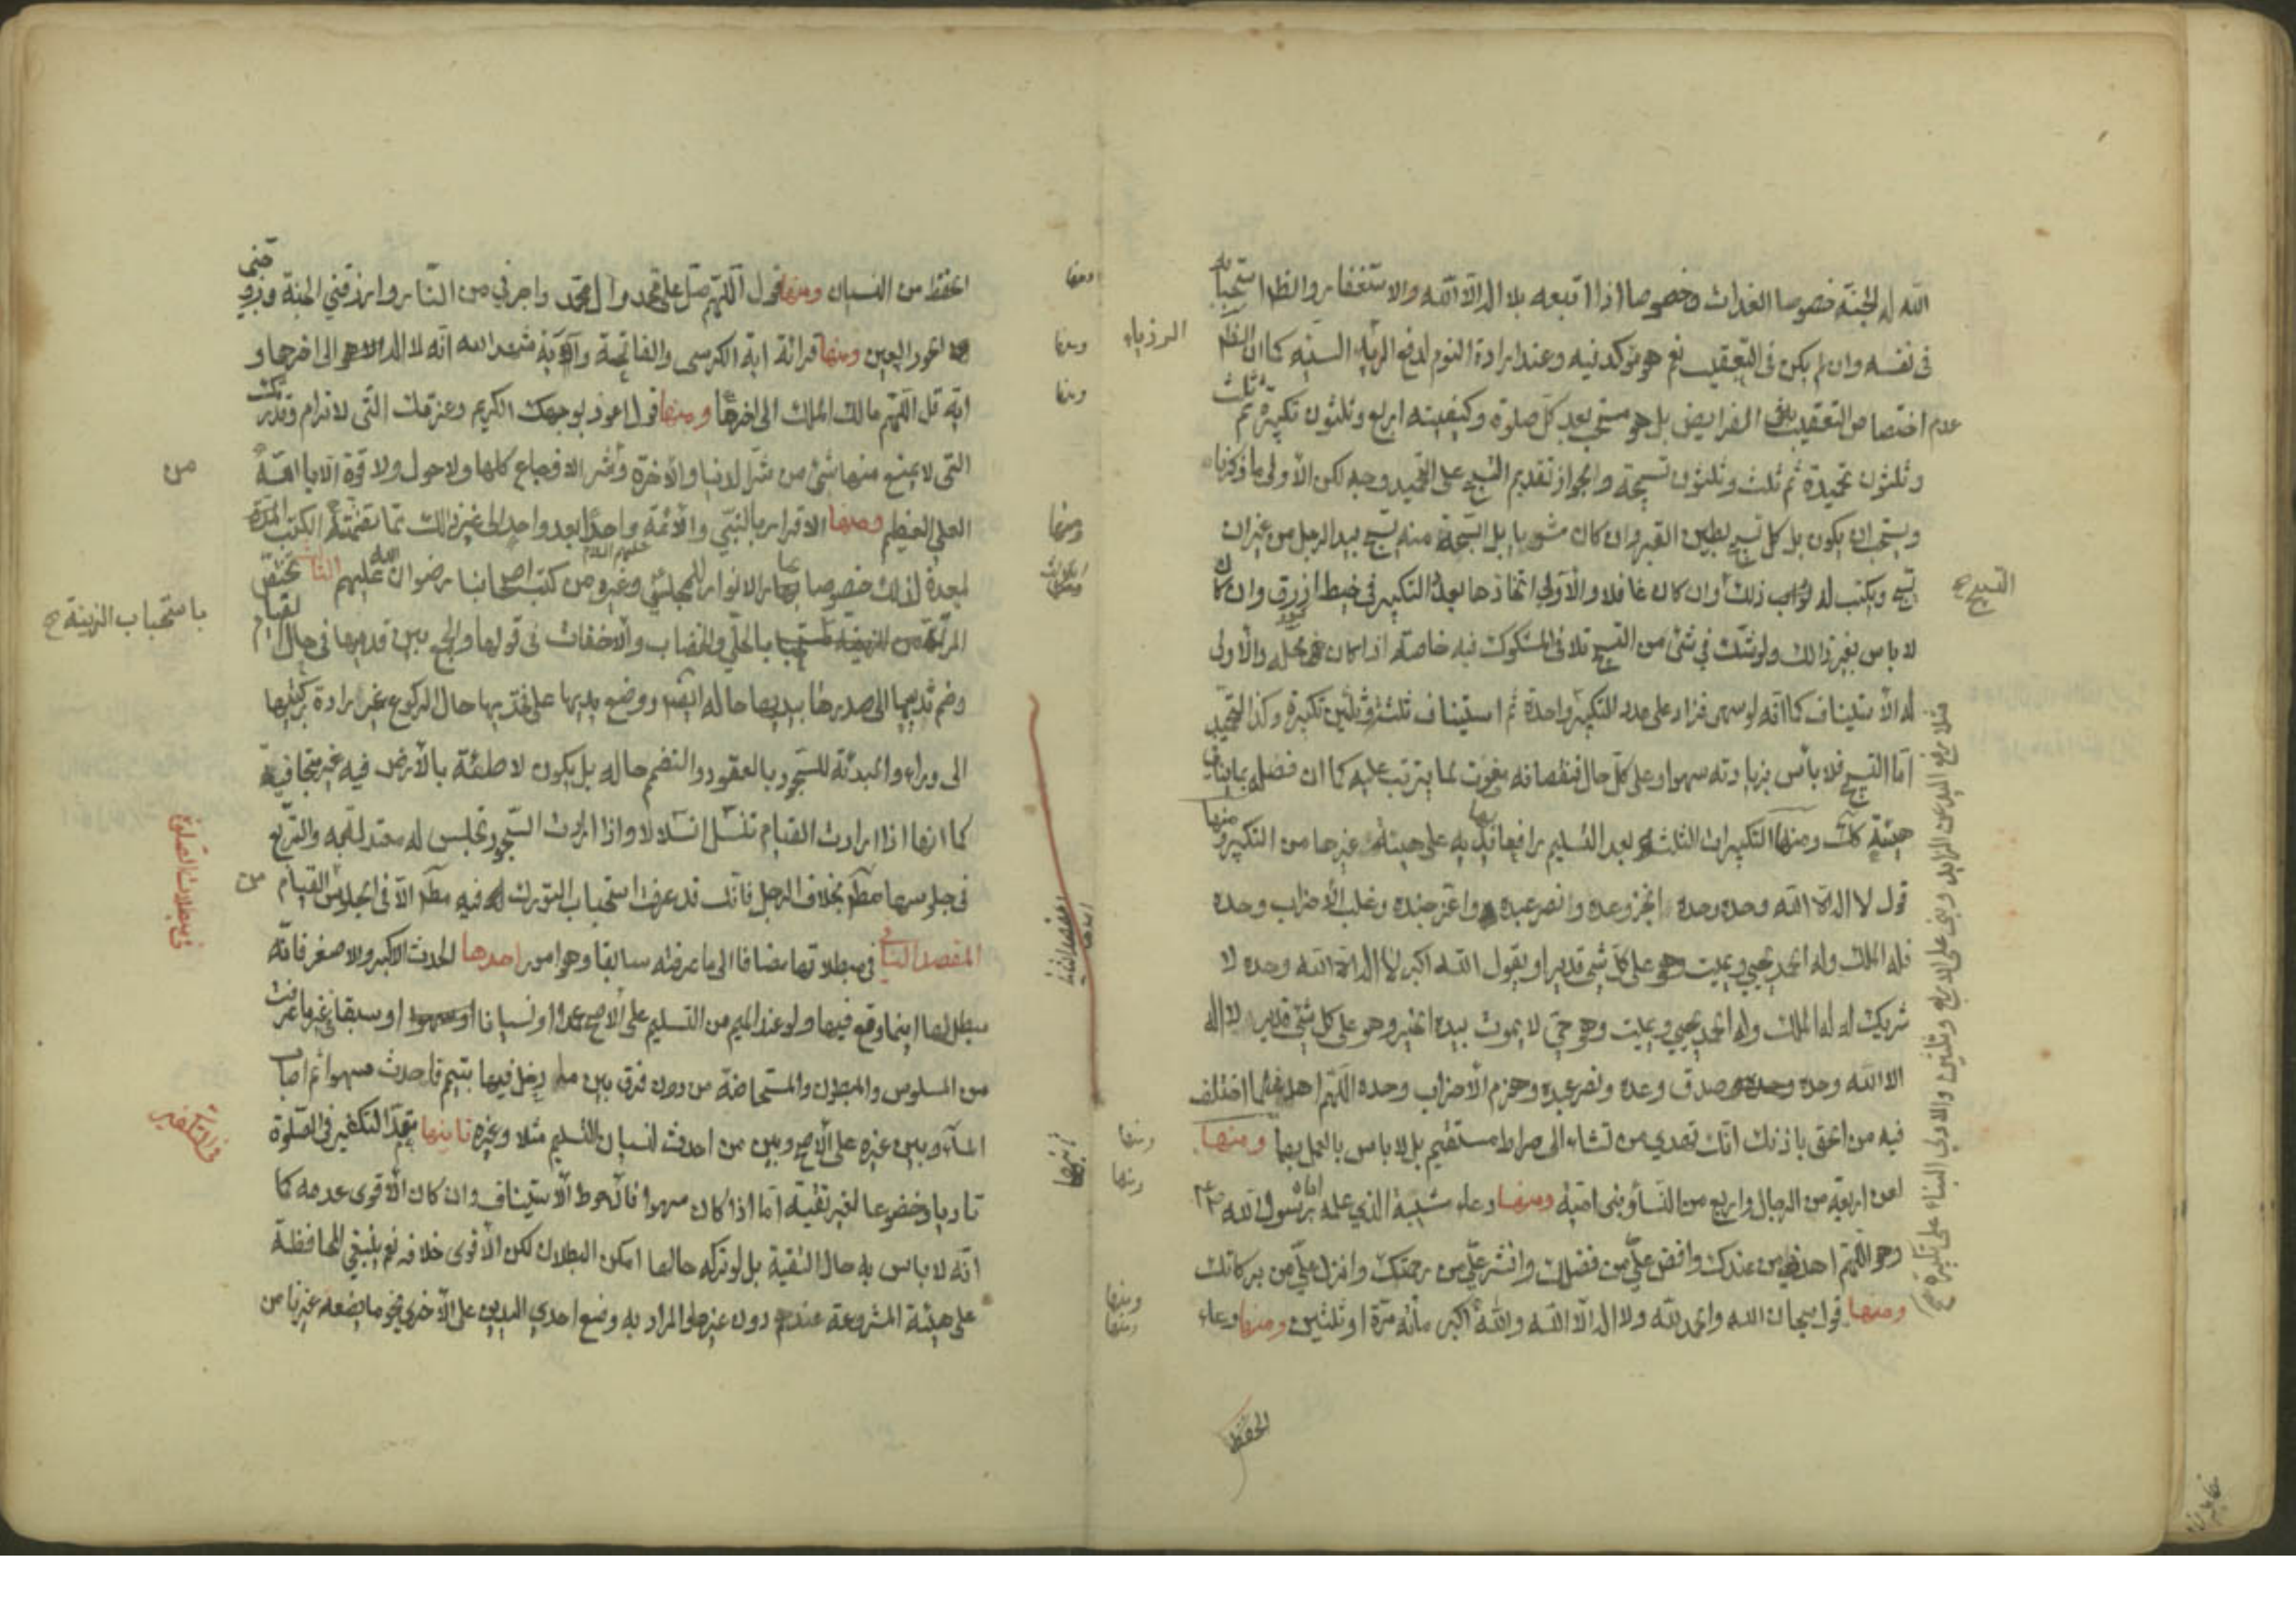 الله له الجنة خصوصا الغداة وخصوصا اذا اتبعه بلا اله الا الله والاستغفار والظ استحبابه
فى نفسه وان لم يكن فى التعقيب نعم هو مؤكد فيه وعند ارادة النوم لدفع الرؤيا السيئه كما ان الظ
عدم اختصاص التعقيب الفرايض بل هو مستحب بعد كل صلوة وكيفيته اربع وثلثون تكبيرة ثم ثلث
وثلثون تحميدة ثم ثلث وثلثون تسبيحة والجواز تقديم التسبيح على التحميد وجه لكن الاولى ما ذكرنا
ويستحب ان يكون بل كل تسبيح بطين القبر وان كان مشويا بل السبحة منه تسبح بيد الرجل من غير ان
يسبح ويكتب له ثواب ذلك وان كان غافلا والاولى اتخاذها بعدد التكبير فى خيط ازرق وان كان
لا باس بغير ذلك ولو شك في شئ من التسبيح تلافى المشكوك فيه خاصه اذا كان فى محله والاولى
له الاستيناف كما انه لو سهى فزاد على عدد التكبير واحدة ثم استيناف ثلث وثلثين تكبيرة وكذا التحميد
اما التسبيح فلا بأس بزيادته سهوا وعلى كل حال فنقصانه مفوت لما يترتب عليه كما ان فضله
هيئة كلك ومنها التكبيرات الثلث بعد التسليم رافعا بها يديه على هيئة غيرها من التكبير ومنها
قول لا اله الا الله وحده وحده انجز وعده ونصر عبده واعز جنده وغلب الاحزاب وحده
فله الملك وله الحمد يحيي ويميت وهو على كل شئ قدير او يقول الله اكبر لا اله الا الله وحده لا
شريك له له الملك وله الحمد يحيي ويميت وهو حي لا يموت بيده الخير وهو على كل شئ قدير لا اله
الا الله وحده وحده صدق وعده ونصر عبده وهزم الاحزاب وحده اللهم اهدنى لما اختلف
فيه من الحق باذنك انك تهدي من تشاء الى صراط مستقيم بل لا باس بالعمل بها ومنها
لعن اربعة من الرجال واربع من النساء وبنى امية ومنها دعاء شيبة الذي علمه اياه رسول الله ص
وهو اللهم اهدني من عندك وافض علي من فضلك وانشر علي من رحمتك وانزل علي من بركاتك
ومنها قول سبحان الله والحمد لله ولا اله الا الله والله اكبر مائة مرة او ثلثين ومنها دعاء
الحفظ
الرؤياء
التسبيح
فلا يرفع اليد عن الزايد ويبنى على الاربع وثلثين والاولى البناء على تكبيرة
ومنها
ومنها
الحفظ من النسيان ومنها قول اللهم صل على محمد وال محمد واجرني من النار وارزقني الجنة وزوجنى
الحور العين ومنها قرائة اية الكرسى والفاتحة وآية شهد الله انه لا اله الا هو الى اخرها و
اية قل اللهم مالك الملك الى اخرها ومنها قول اعوذ بوجهك الكريم وعزتك التى لا ترام وقدرتك
التى لا يمتنع منها شئ من شر الدنيا والاخرة وشر الاوجاع كلها ولا حول ولا قوة الا بالله
العلى العظيم ومنها الاقرار بالنبي والائمة واحدا بعد واحد الى غير ذلك مما تضمنته الكتب المعدة
لذلك خصوصا بحار الانوار للمجلسي وغيره من كتب اصحابنا رضوان الله عليهم تختص
المرئة بالحلي والخضاب والاخفات فى قولها والجمع بين قدميها فى حال القيام
وضم ثدييها الى صدرها بيديها حاله ايضا ووضع يديها على فخذيها حال الركوع غير رادة ركبتيها
الى وراء والبدئة للسجود بالقعود والتضم حاله بل يكون لاطئة بالأرض فيه غير متجافية
كما انها اذا ارادت القيام تنسل انسلالا واذا ارادت السجود تجلس له معتدلة والتربع
فى جلوسها مط بخلاف الرجل فانك قد عرفت استحباب التورك له فيه مط الا فى الجلوس القيام
المقصد الثانى فى مبطلاتها مضافا الى ما عرفته سابقا وهو امور احدها الحدث الاكبر والاصغر فانه
مبطل لها اينما وقع فيها ولو عند الميم من التسليم على الاصح عمدا او نسيانا او سبقا فى غير ما عرفت
من المسلوس والمبطون والمستحاضة من دون فرق بين من دخل فيها بتيمم فاحدث سهوا ثم اصاب
الماء وبين غيره على الاصح وبين من احدث لنسيان التسليم مثلا وغيره ثانيها تعمد التكفير فى الصلوة
تادبا وخضوعا لغير تقية اما اذا كان سهوا فالاحوط الاستيناف وان كان الاقوى عدمه كما
انه لا باس به حال التقية بل لو تركه حالها امكن البطلان لكن الاقوى خلافه نعم ينبغي المحافظة
على هيئة المشروعة عندهم دون غيرها والمراد به وضع احدى اليدين على الاخرى نحو ما يضعه غيرنا من
من
باستحباب الزينة
فى مبطلات الصلوة
من
فى التكفير